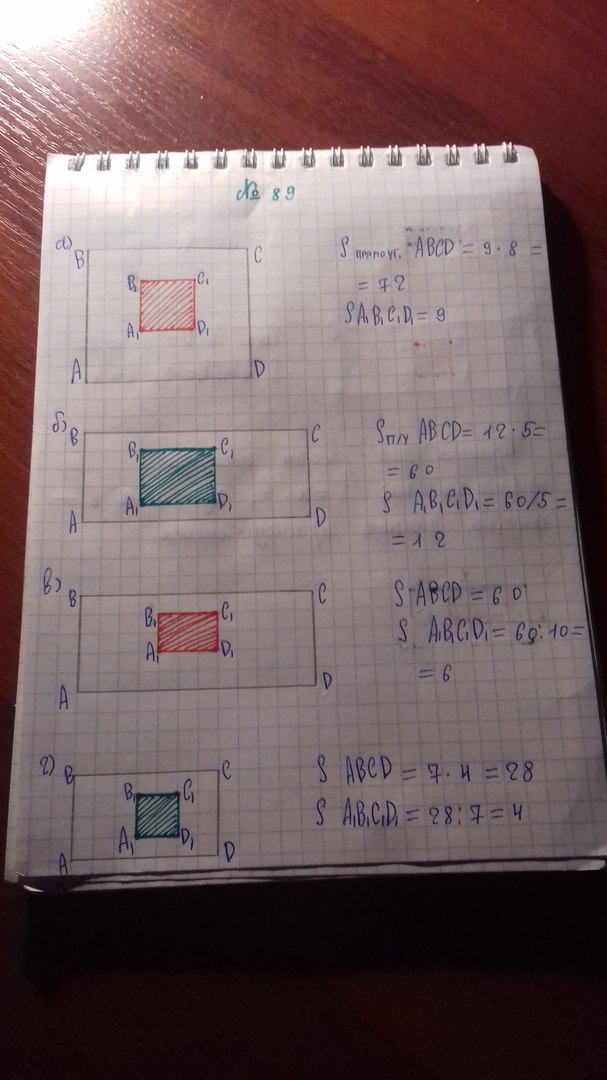 № 89
а)
B C
B₁ C₁
A₁ D₁
A D
S прямоуг. ABCD = 9 · 8 =
= 72
S A₁B₁C₁D₁ = 9
б)
B C
B₁ C₁
A₁ D₁
A D
S п/у ABCD = 12 · 5 =
= 60
S A₁B₁C₁D₁ = 60/5 =
= 12
в)
B C
B₁ C₁
A₁ D₁
A D
S ABCD = 60
S A₁B₁C₁D₁ = 60 : 10 =
= 6
г)
B C
B₁ C₁
A₁ D₁
A D
S ABCD = 7 · 4 = 28
S A₁B₁C₁D₁ = 28 : 7 = 4